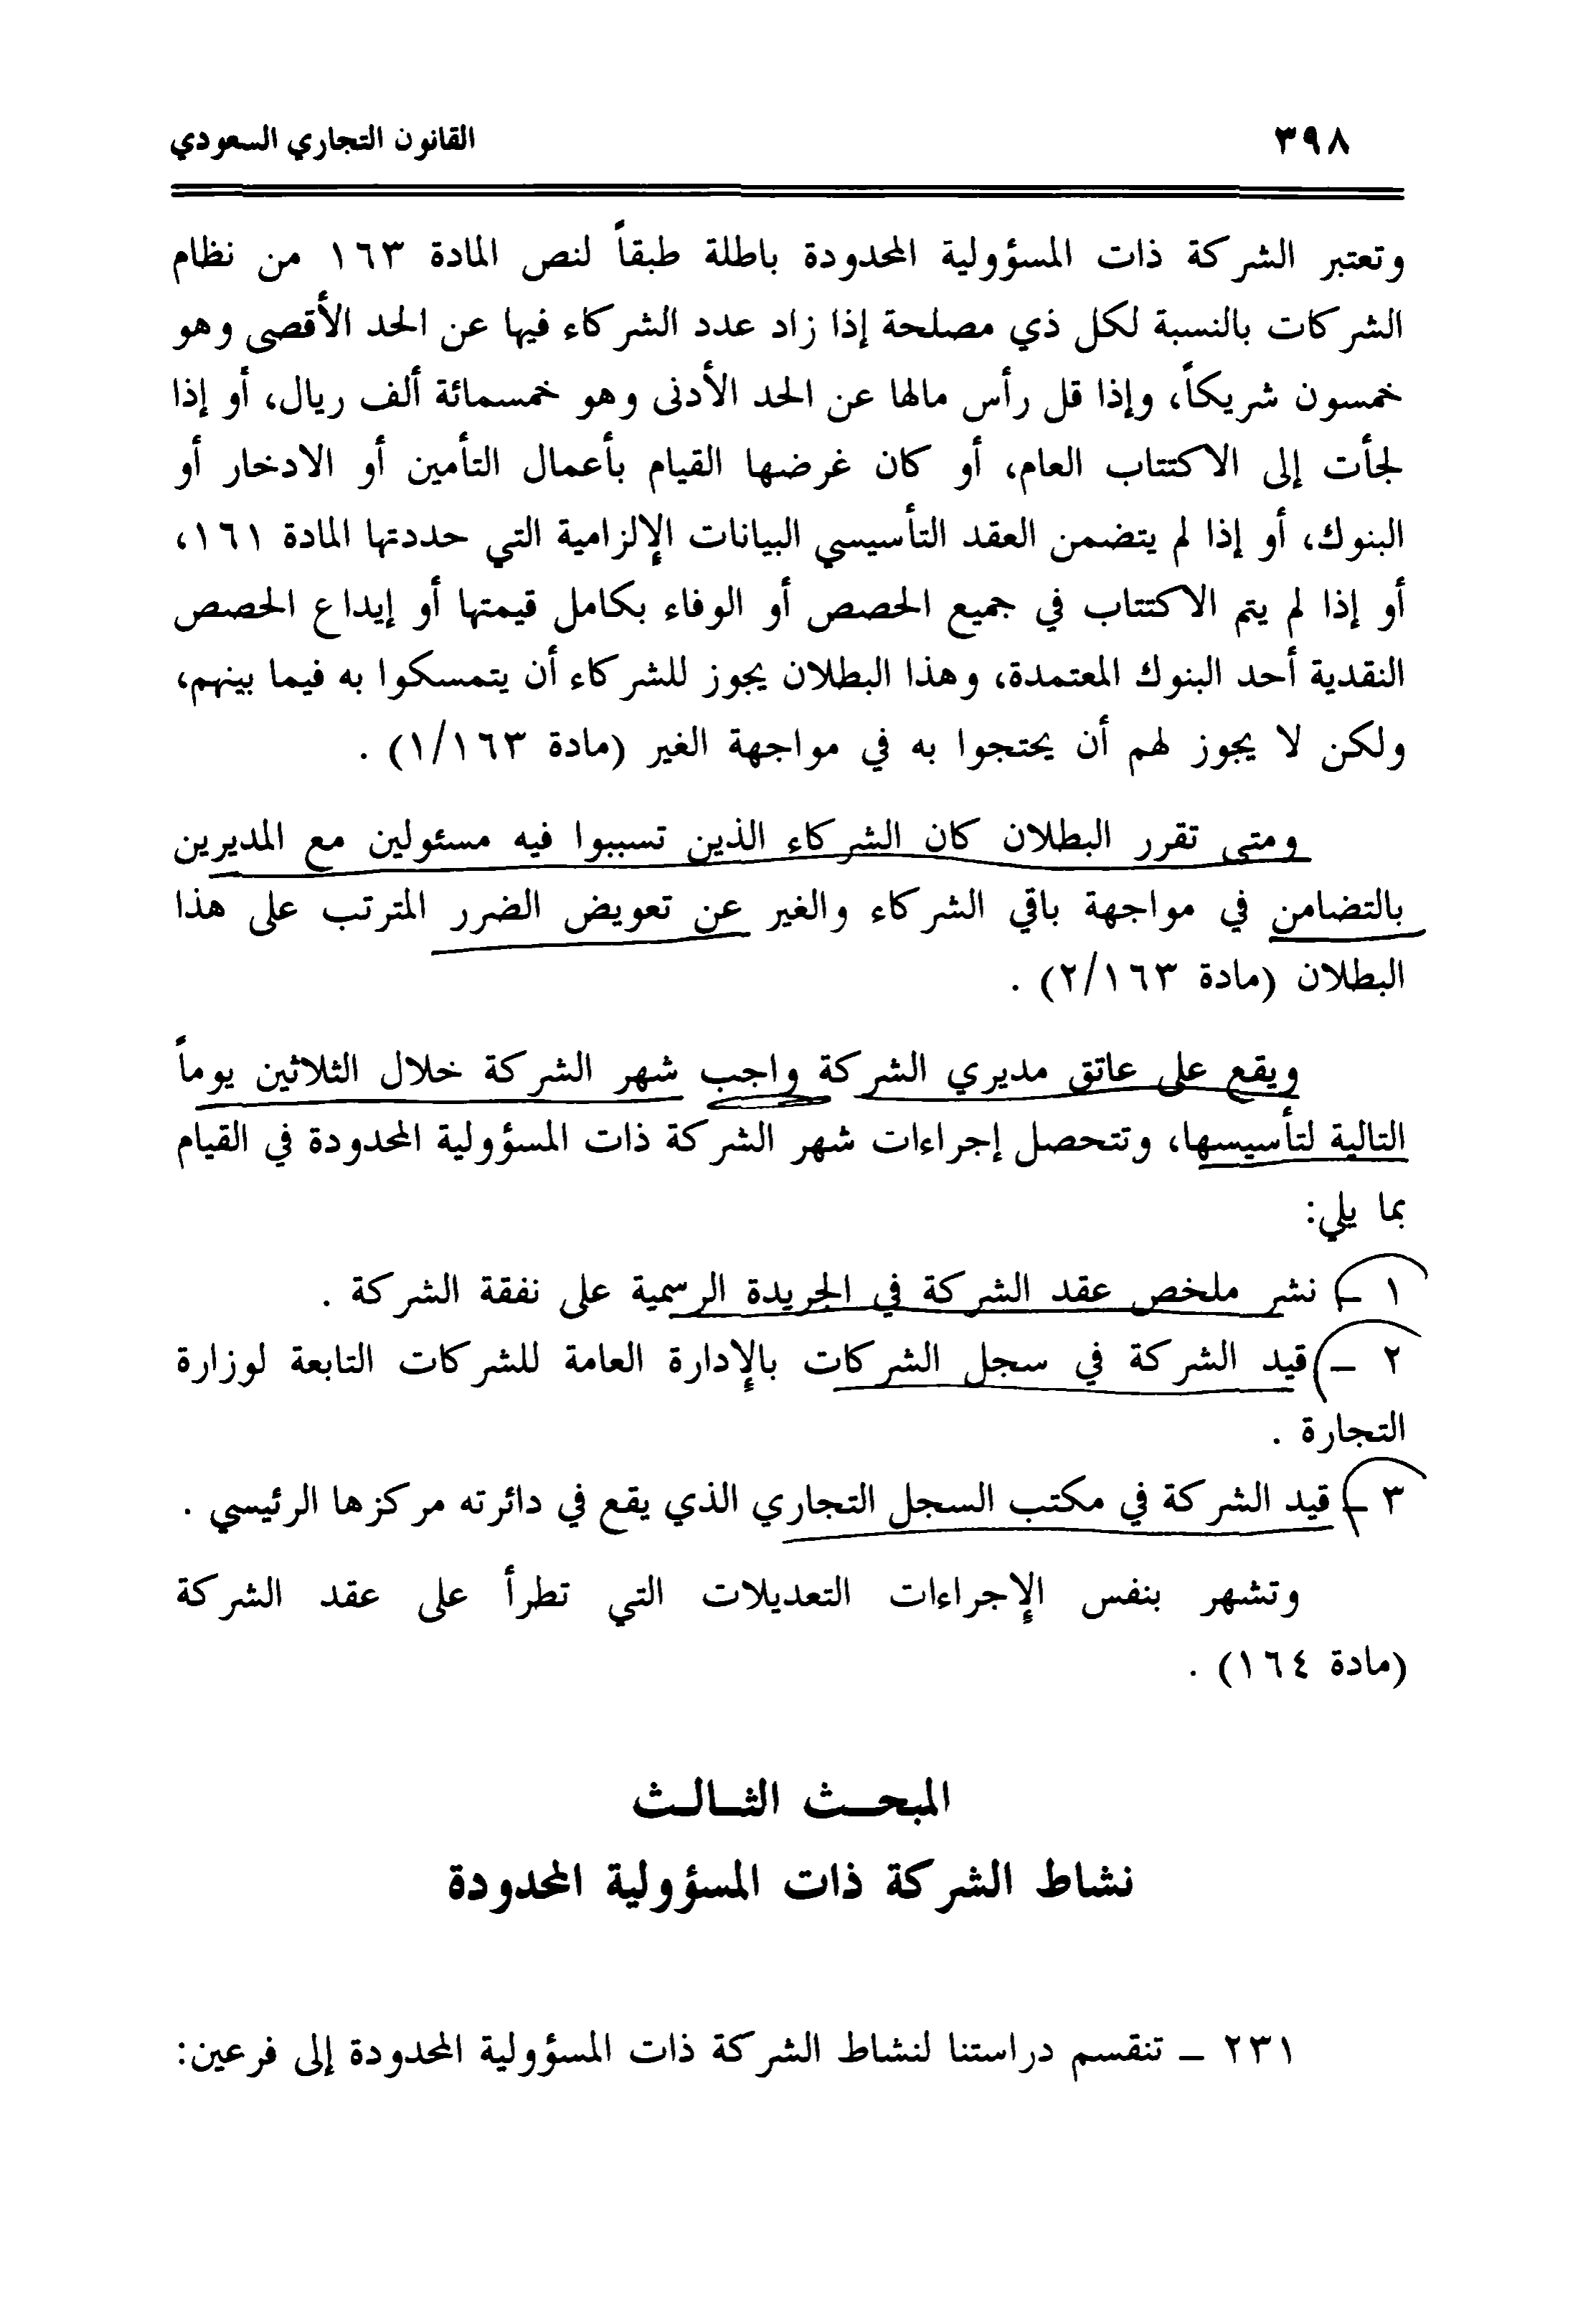 ٣٩٨
القانون التجاري السعودي
وتعتبر الشركة ذات المسؤولية المحدودة باطلة طبقاً لنص المادة ١٦٣ من نظام
الشركات بالنسبة لكل ذي مصلحة إذا زاد عدد الشركاء فيها عن الحد الأقصى وهو
خمسون شريكاً، وإذا قل رأس مالها عن الحد الأدنى وهو خمسمائة ألف ريال، أو إذا
لجأت إلى الاكتتاب العام، أو كان غرضها القيام بأعمال التأمين أو الادخار أو
البنوك، أو إذا لم يتضمن العقد التأسيسي البيانات الإلزامية التي حددتها المادة ١٦١،
أو إذا لم يتم الاكتتاب في جميع الحصص أو الوفاء بكامل قيمتها أو إيداع الحصص
النقدية أحد البنوك المعتمدة، وهذا البطلان يجوز للشركاء أن يتمسكوا به فيما بينهم،
ولكن لا يجوز لهم أن يحتجوا به في مواجهة الغير (مادة ١/١٦٣) .
ومتى تقرر البطلان كان الشركاء الذين تسببوا فيه مسئولين مع المديرين
بالتضامن في مواجهة باقي الشركاء والغير عن تعويض الضرر المترتب على هذا
البطلان (مادة ٢/١٦٣) .
ويقع على عاتق مديري الشركة واجب شهر الشركة خلال الثلاثين يوماً
التالية لتأسيسها، وتتحصل إجراءات شهر الشركة ذات المسؤولية المحدودة في القيام
بما يلي:
١ ـ نشر ملخص عقد الشركة في الجريدة الرسمية على نفقة الشركة .
٢ ـ قيد الشركة في سجل الشركات بالإدارة العامة للشركات التابعة لوزارة
التجارة .
٣ ـ قيد الشركة في مكتب السجل التجاري الذي يقع في دائرته مركزها الرئيسي .
وتشهر بنفس الإجراءات التعديلات التي تطرأ على عقد الشركة
(مادة ١٦٤) .
المبحـث الثـالـث
نشاط الشركة ذات المسؤولية المحدودة
٢٣١ ـ تنقسم دراستنا لنشاط الشركة ذات المسؤولية المحدودة إلى فرعين: